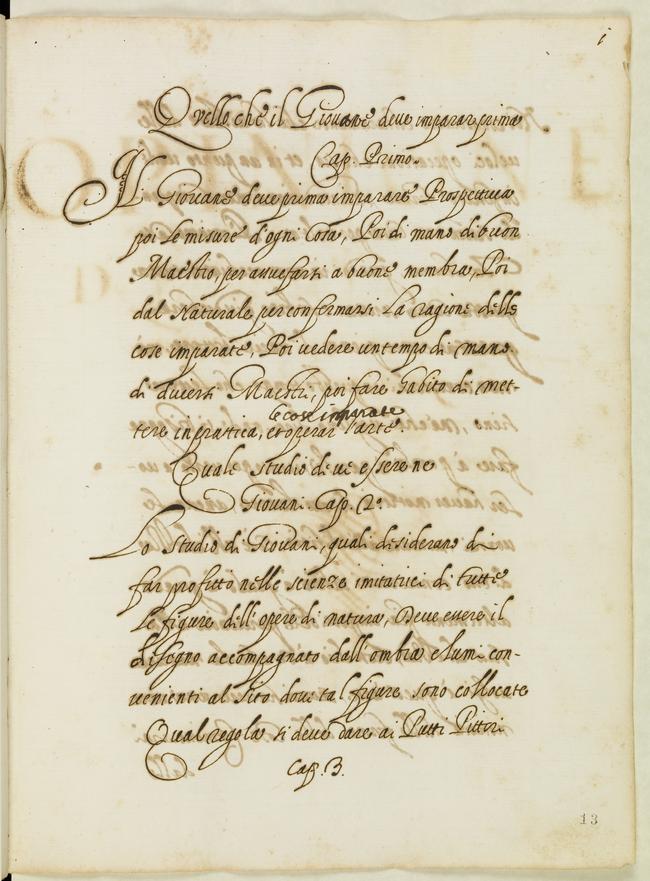 i
Quello che il Giovane deve imparar prima
Cap. Primo.
Il Giovane deve prima imparare Prospettiva
poi le misure d'ogni Cosa, Poi di mano di buon
Maestro, per avvefarsi a buone membra, Poi
dal Naturale per confermarsi la ragione delle
cose imparate, Poi vedere un tempo di mano
di diversi Maestri, poi fare habito di met-
le cose imparate
tere in prattica, et operar l'arte
Quale studio deve essere ne
Giovani. Cap. 2.º
Lo studio di Giovani, quali desiderano di
far profitto nelle scienze imitatrici di tutte
le figure dell'opere di natura, Deve essere il
disegno accompagnato dall'ombra e lumi con-
venienti al sito dove tal figure sono collocate
Qual regola si deve dare ai Putti Pittori
Cap. 3.
13